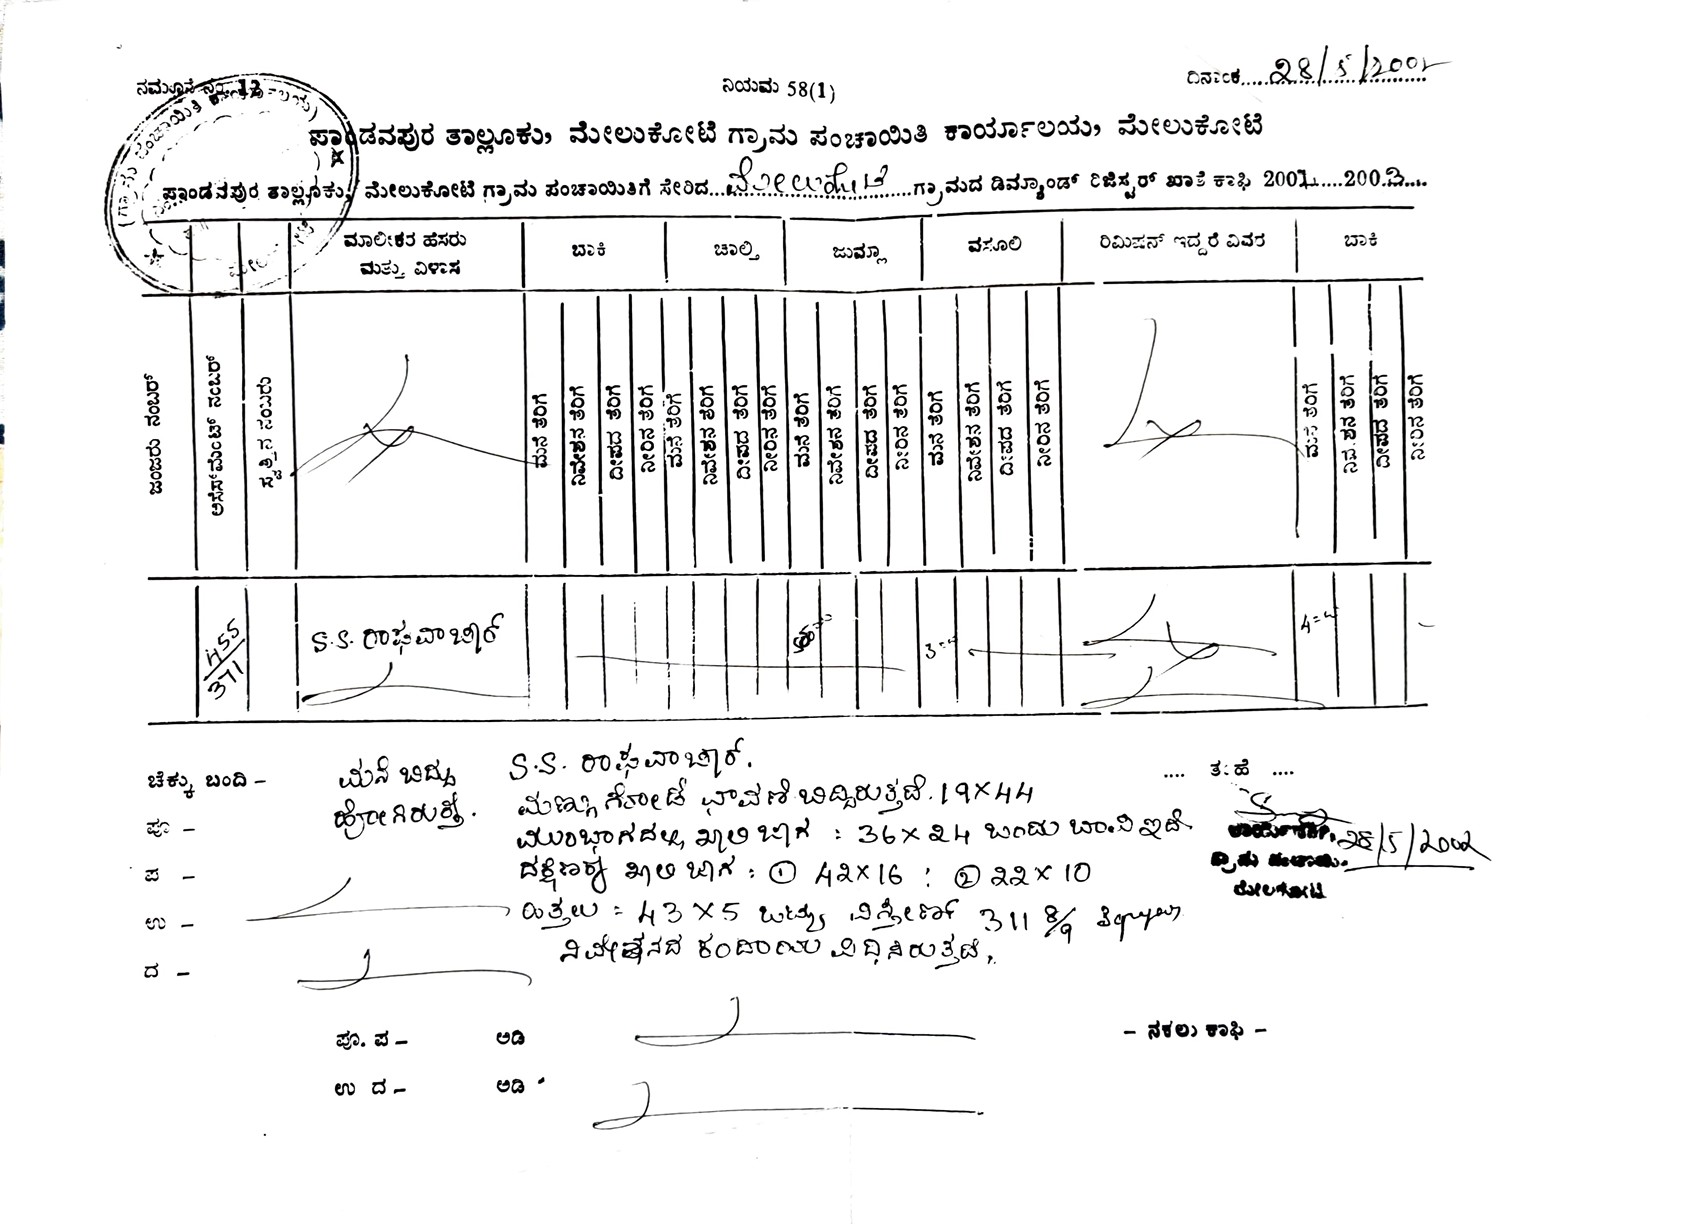 ನಮೂನೆ ನಂ. 12 ನಿಯಮ 58(1) ದಿನಾಂಕ.....28/5/2002
ಪಾಂಡವಪುರ ತಾಲ್ಲೂಕು, ಮೇಲುಕೋಟೆ ಗ್ರಾಮ ಪಂಚಾಯಿತಿ ಕಾರ್ಯಾಲಯ, ಮೇಲುಕೋಟೆ
ಪಾಂಡವಪುರ ತಾಲ್ಲೂಕು, ಮೇಲುಕೋಟೆ ಗ್ರಾಮ ಪಂಚಾಯಿತಿಗೆ ಸೇರಿದ...ಮೇಲುಕೋಟೆ...ಗ್ರಾಮದ ಡಿಮ್ಯಾಂಡ್ ರಿಜಿಸ್ಟರ್ ಖಾತೆ ಕಾಫಿ 2001....2002....
ಮಾಲೀಕರ ಹೆಸರು ಮತ್ತು ವಿಳಾಸ ಬಾಕಿ ಚಾಲ್ತಿ ಜುಮ್ಲಾ ವಸೂಲಿ ರಿಮಿಷನ್ ಇದ್ದರೆ ವಿವರ ಬಾಕಿ
ಜಂಜರು ನಂಬರ್ ಅಸೆಸ್‌ಮೆಂಟ್ ನಂಬರ್ ಸ್ವತ್ತಿನ ನಂಬರು ಮನೆ ತೆರಿಗೆ ನಿವೇಶನ ತೆರಿಗೆ ದೀಪದ ತೆರಿಗೆ ನೀರಿನ ತೆರಿಗೆ ಮನೆ ತೆರಿಗೆ ನಿವೇಶನ ತೆರಿಗೆ ದೀಪದ ತೆರಿಗೆ ನೀರಿನ ತೆರಿಗೆ ಮನೆ ತೆರಿಗೆ ನಿವೇಶನ ತೆರಿಗೆ ದೀಪದ ತೆರಿಗೆ ನೀರಿನ ತೆರಿಗೆ ಮನೆ ತೆರಿಗೆ ನಿವೇಶನ ತೆರಿಗೆ ದೀಪದ ತೆರಿಗೆ ನೀರಿನ ತೆರಿಗೆ ಮನೆ ತೆರಿಗೆ ನಿವೇಶನ ತೆರಿಗೆ ದೀಪದ ತೆರಿಗೆ ನೀರಿನ ತೆರಿಗೆ
455/371 S.S. ರಾಘವಾಚಾರ್
ಚೆಕ್ಕು ಬಂದಿ – ಮನೆ ಬಿದ್ದು S.S. ರಾಘವಾಚಾರ್. .... ತ.ಹೆ ....
ಹೋಗಿರುತ್ತೆ. ಮಣ್ಣು ಗೋಡೆ ಛಾವಣಿ ಬಿದ್ದಿರುತ್ತದೆ. 19×44
ಪೂ – ಮುಂಭಾಗದಲ್ಲಿ ಖಾಲಿ ಜಾಗ : 36×24 ಒಂದು ಬಾವಿ ಇದೆ 28/5/2002
ಪ – ದಕ್ಷಿಣಕ್ಕೆ ಖಾಲಿ ಜಾಗ : ① 42×16 : ② 22×10 ಗ್ರಾಮ ಪಂಚಾಯಿತಿ
ಮೇಲುಕೋಟೆ
ಉ – ಹಿತ್ತಲು = 43×5 ಒಟ್ಟು ವಿಸ್ತೀರ್ಣ 311 8/9
ನಿವೇಶನದ ಕಂದಾಯ ವಿಧಿಸಿರುತ್ತದೆ,
ದ –
ಪೂ. ಪ – ಅಡಿ – ನಕಲು ಕಾಫಿ –
ಉ ದ – ಅಡಿ